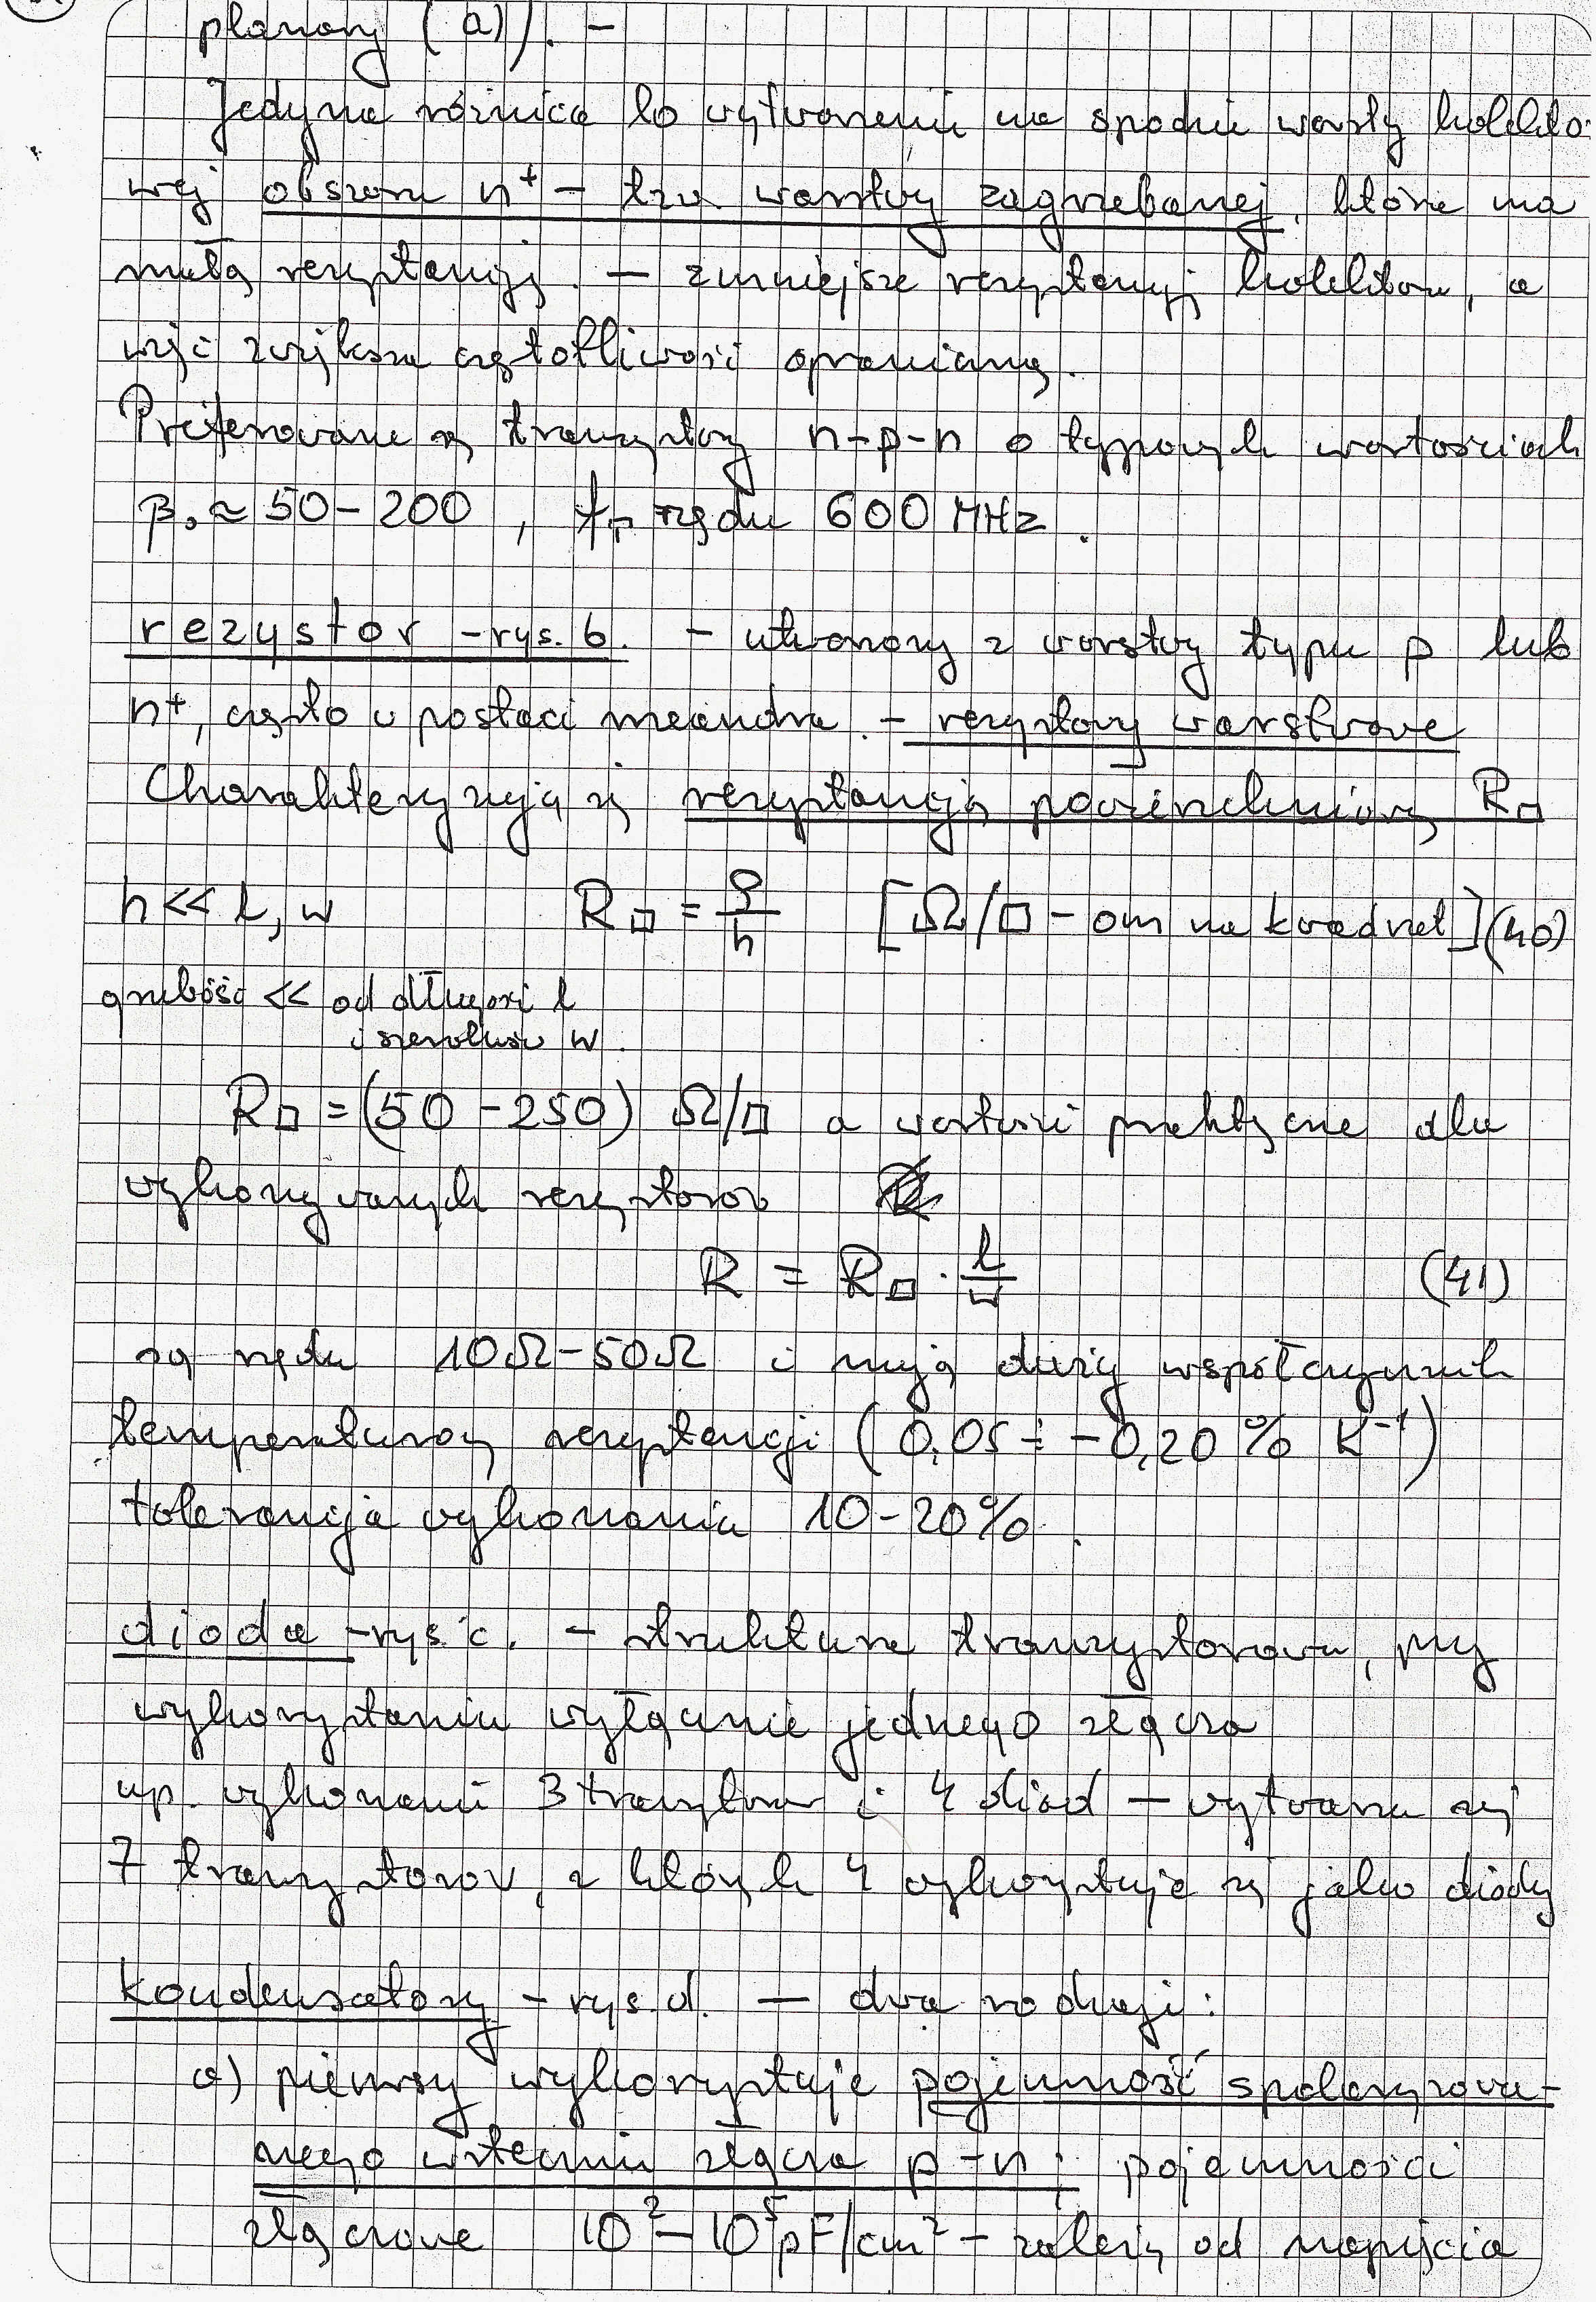 planarny (a)). –
Jedyna różnica to wytworzenie na spodzie warstwy kolekto-
wej obszaru n⁺ – tzw. warstwy zagrzebanej, która ma
małą rezystancję. – zmniejsza rezystancję kolektora, a
więc zwiększa częstotliwość graniczną.
Preferowane są tranzystory n-p-n o typowych wartościach
β₀ ≈ 50 – 200 , f_T rzędu 600 MHz .
rezystor – rys. b. – utworzony z warstwy typu p lub
n⁺, często w postaci meandra. – rezystory warstwowe
Charakteryzują się rezystancją powierzchniową R□
h << l, w R□ = ρ/h [Ω/□ – om na kwadrat] (40)
grubość << od długości l
i szerokości w.
R□ = (50 – 250) Ω/□ a wartości praktyczne dla
wykonywanych rezystorów
R = R□ · l/w (41)
są rzędu 10Ω – 50Ω i mają duży współczynnik
temperaturowy rezystancji (0,05 ÷ –0,20 % K⁻¹)
tolerancja wykonania 10 – 20%.
dioda – rys. c. – struktura tranzystorowa, przy
wykorzystaniu wyłącznie jednego złącza
np. wykonanie 3 tranzystorów i 4 diod – wytwarza się
7 tranzystorów, z których 4 wykorzystuje się jako diody
kondensatory – rys. d. – dwa rodzaje :
a) pierwszy wykorzystuje pojemność spolaryzowa-
nego wstecznie złącza p – n ; pojemności
złączowe 10² – 10⁵ pF/cm² – zależą od napięcia